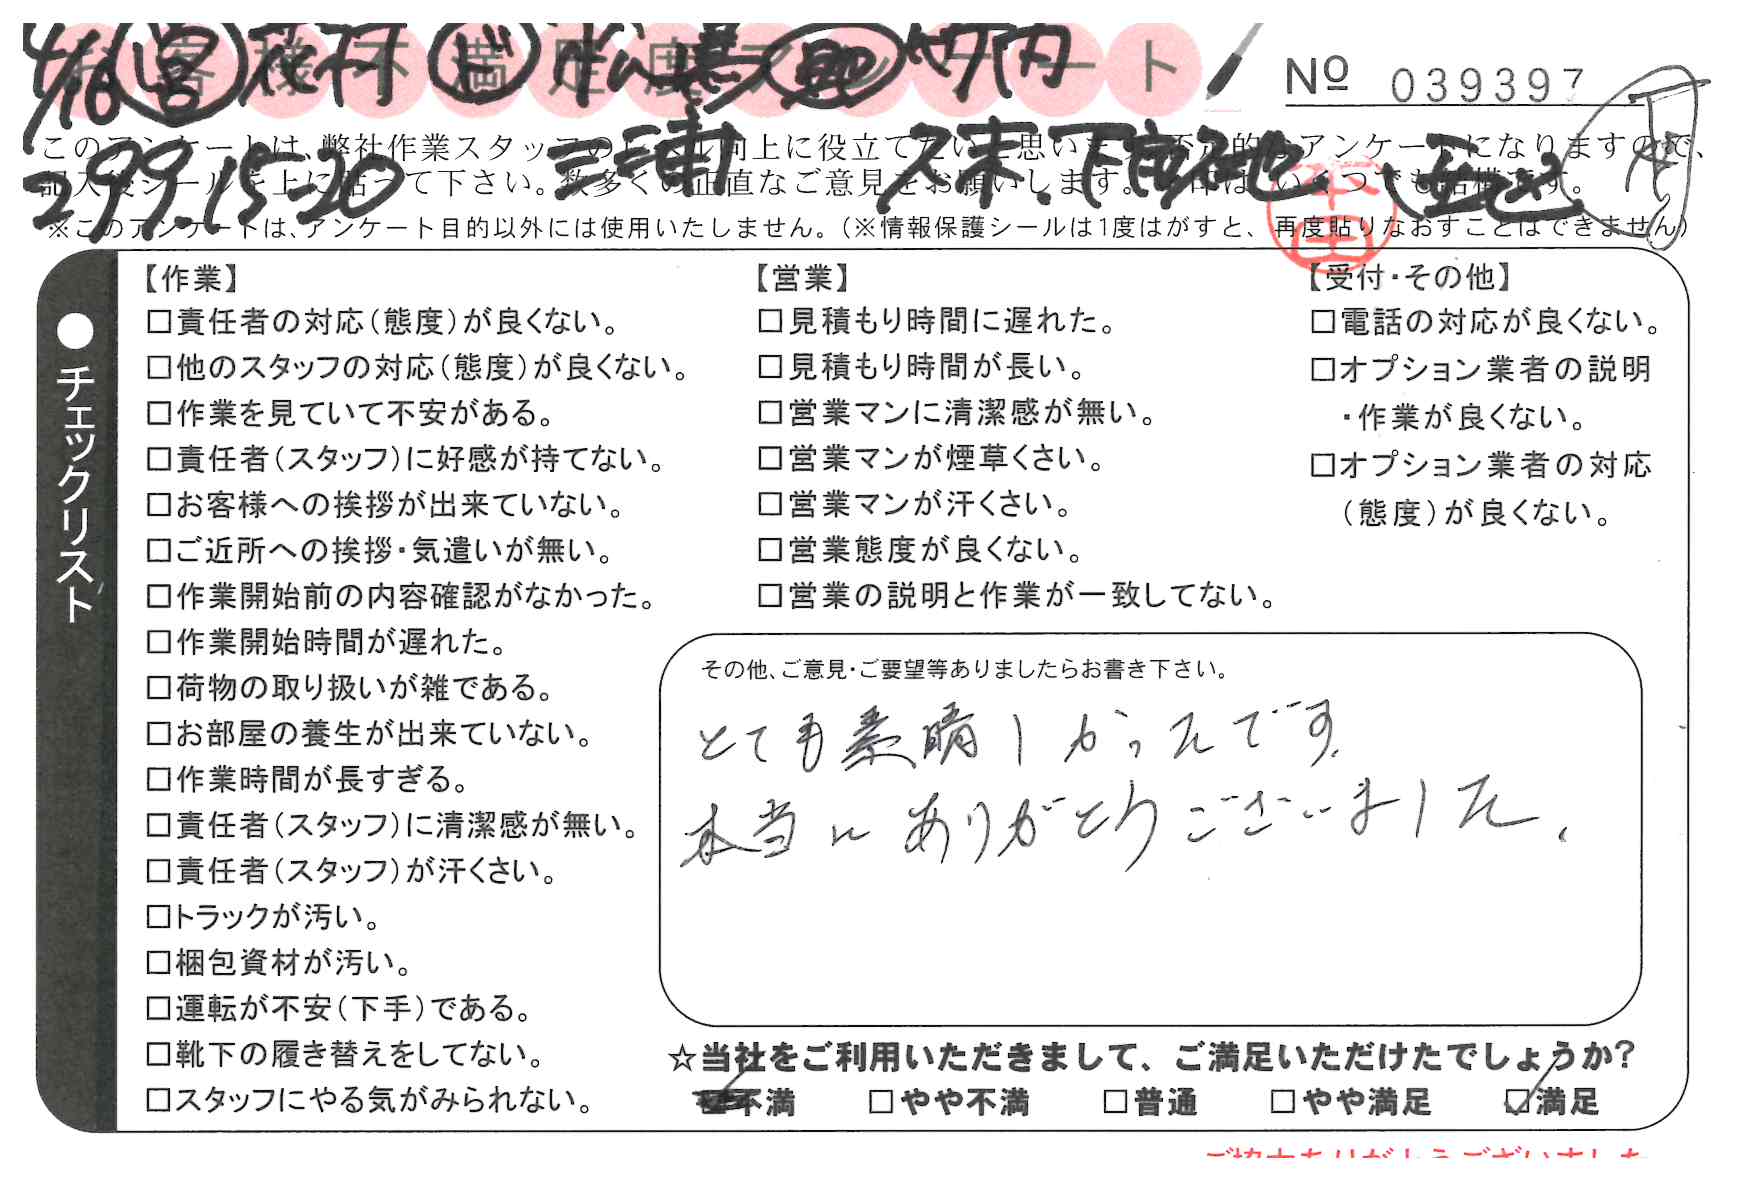 お客様不満足度アンケート
№ 039397
4/16
299.15-20
このアンケートは、弊社作業スタッフのレベル向上に役立てたいと思います。否定的なアンケートになりますので、
記入後シールを上に貼って下さい。数多くの正直なご意見をお願いします。✓印は、いくつでも結構です。
※このアンケートは、アンケート目的以外には使用いたしません。(※情報保護シールは1度はがすと、再度貼りなおすことはできません)
●チェックリスト
【作業】
□責任者の対応(態度)が良くない。
□他のスタッフの対応(態度)が良くない。
□作業を見ていて不安がある。
□責任者(スタッフ)に好感が持てない。
□お客様への挨拶が出来ていない。
□ご近所への挨拶・気遣いが無い。
□作業開始前の内容確認がなかった。
□作業開始時間が遅れた。
□荷物の取り扱いが雑である。
□お部屋の養生が出来ていない。
□作業時間が長すぎる。
□責任者(スタッフ)に清潔感が無い。
□責任者(スタッフ)が汗くさい。
□トラックが汚い。
□梱包資材が汚い。
□運転が不安(下手)である。
□靴下の履き替えをしてない。
□スタッフにやる気がみられない。
【営業】
□見積もり時間に遅れた。
□見積もり時間が長い。
□営業マンに清潔感が無い。
□営業マンが煙草くさい。
□営業マンが汗くさい。
□営業態度が良くない。
□営業の説明と作業が一致してない。
【受付・その他】
□電話の対応が良くない。
□オプション業者の説明
・作業が良くない。
□オプション業者の対応
(態度)が良くない。
その他、ご意見・ご要望等ありましたらお書き下さい。
とても素晴しかったです。
本当にありがとうございました。
☆当社をご利用いただきまして、ご満足いただけたでしょうか?
不満 □やや不満 □普通 □やや満足 ☑満足
ご協力ありがとうございました